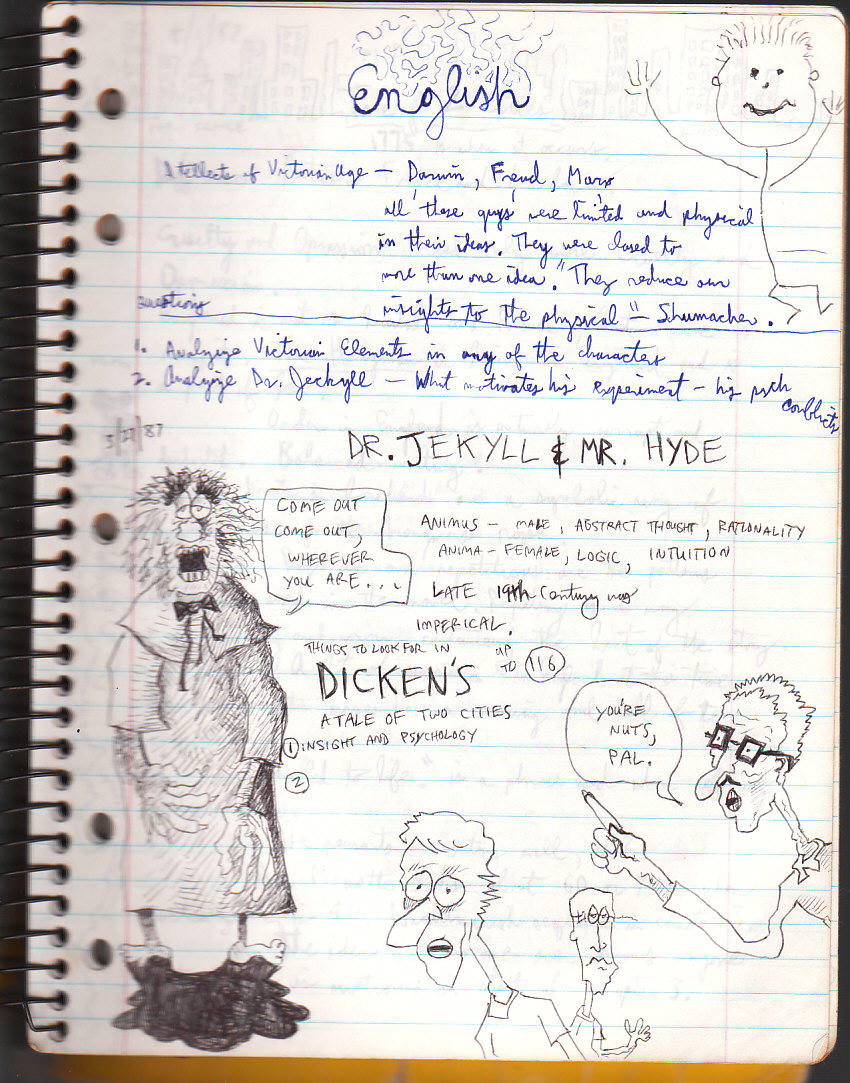 English
Intellects of Victorian Age — Darwin, Freud, Marx
all 'these guys' were limited and physical
in their ideas. They were closed to
more than one idea. "They reduce our
insights to the physical" — Shumacher.
questions
1. Analyize Victorian Elements in any of the characters
2. Analyize Dr. Jeckyll — What motivates his experiment — his psch
conflicts
3/27/87
DR. JEKYLL & MR. HYDE
COME OUT
COME OUT,
WHEREVER
YOU ARE...
ANIMUS — MALE, ABSTRACT THOUGHT, RATIONALITY
ANIMA — FEMALE, LOGIC, INTUITION
LATE 19th Century was
IMPERICAL.
THINGS TO LOOK FOR IN
UP
TO 116
DICKEN'S
A TALE OF TWO CITIES
1 INSIGHT AND PSYCHOLOGY
2
YOU'RE
NUTS,
PAL.